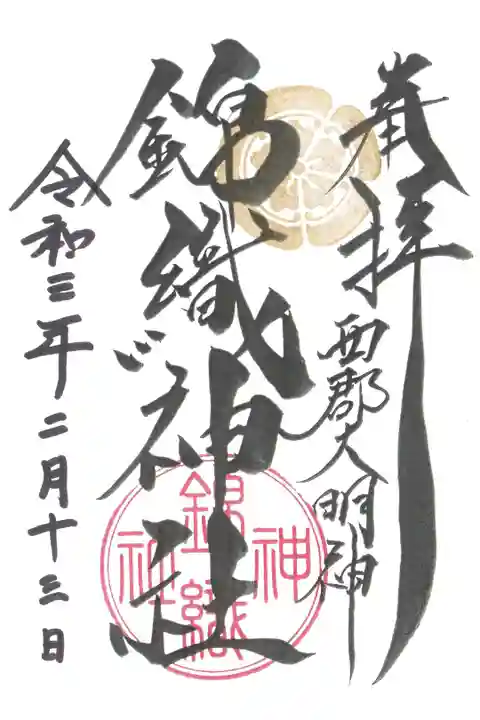 奉拝
西郡大明神
錦織神社
令和三年二月十三日
錦織神社